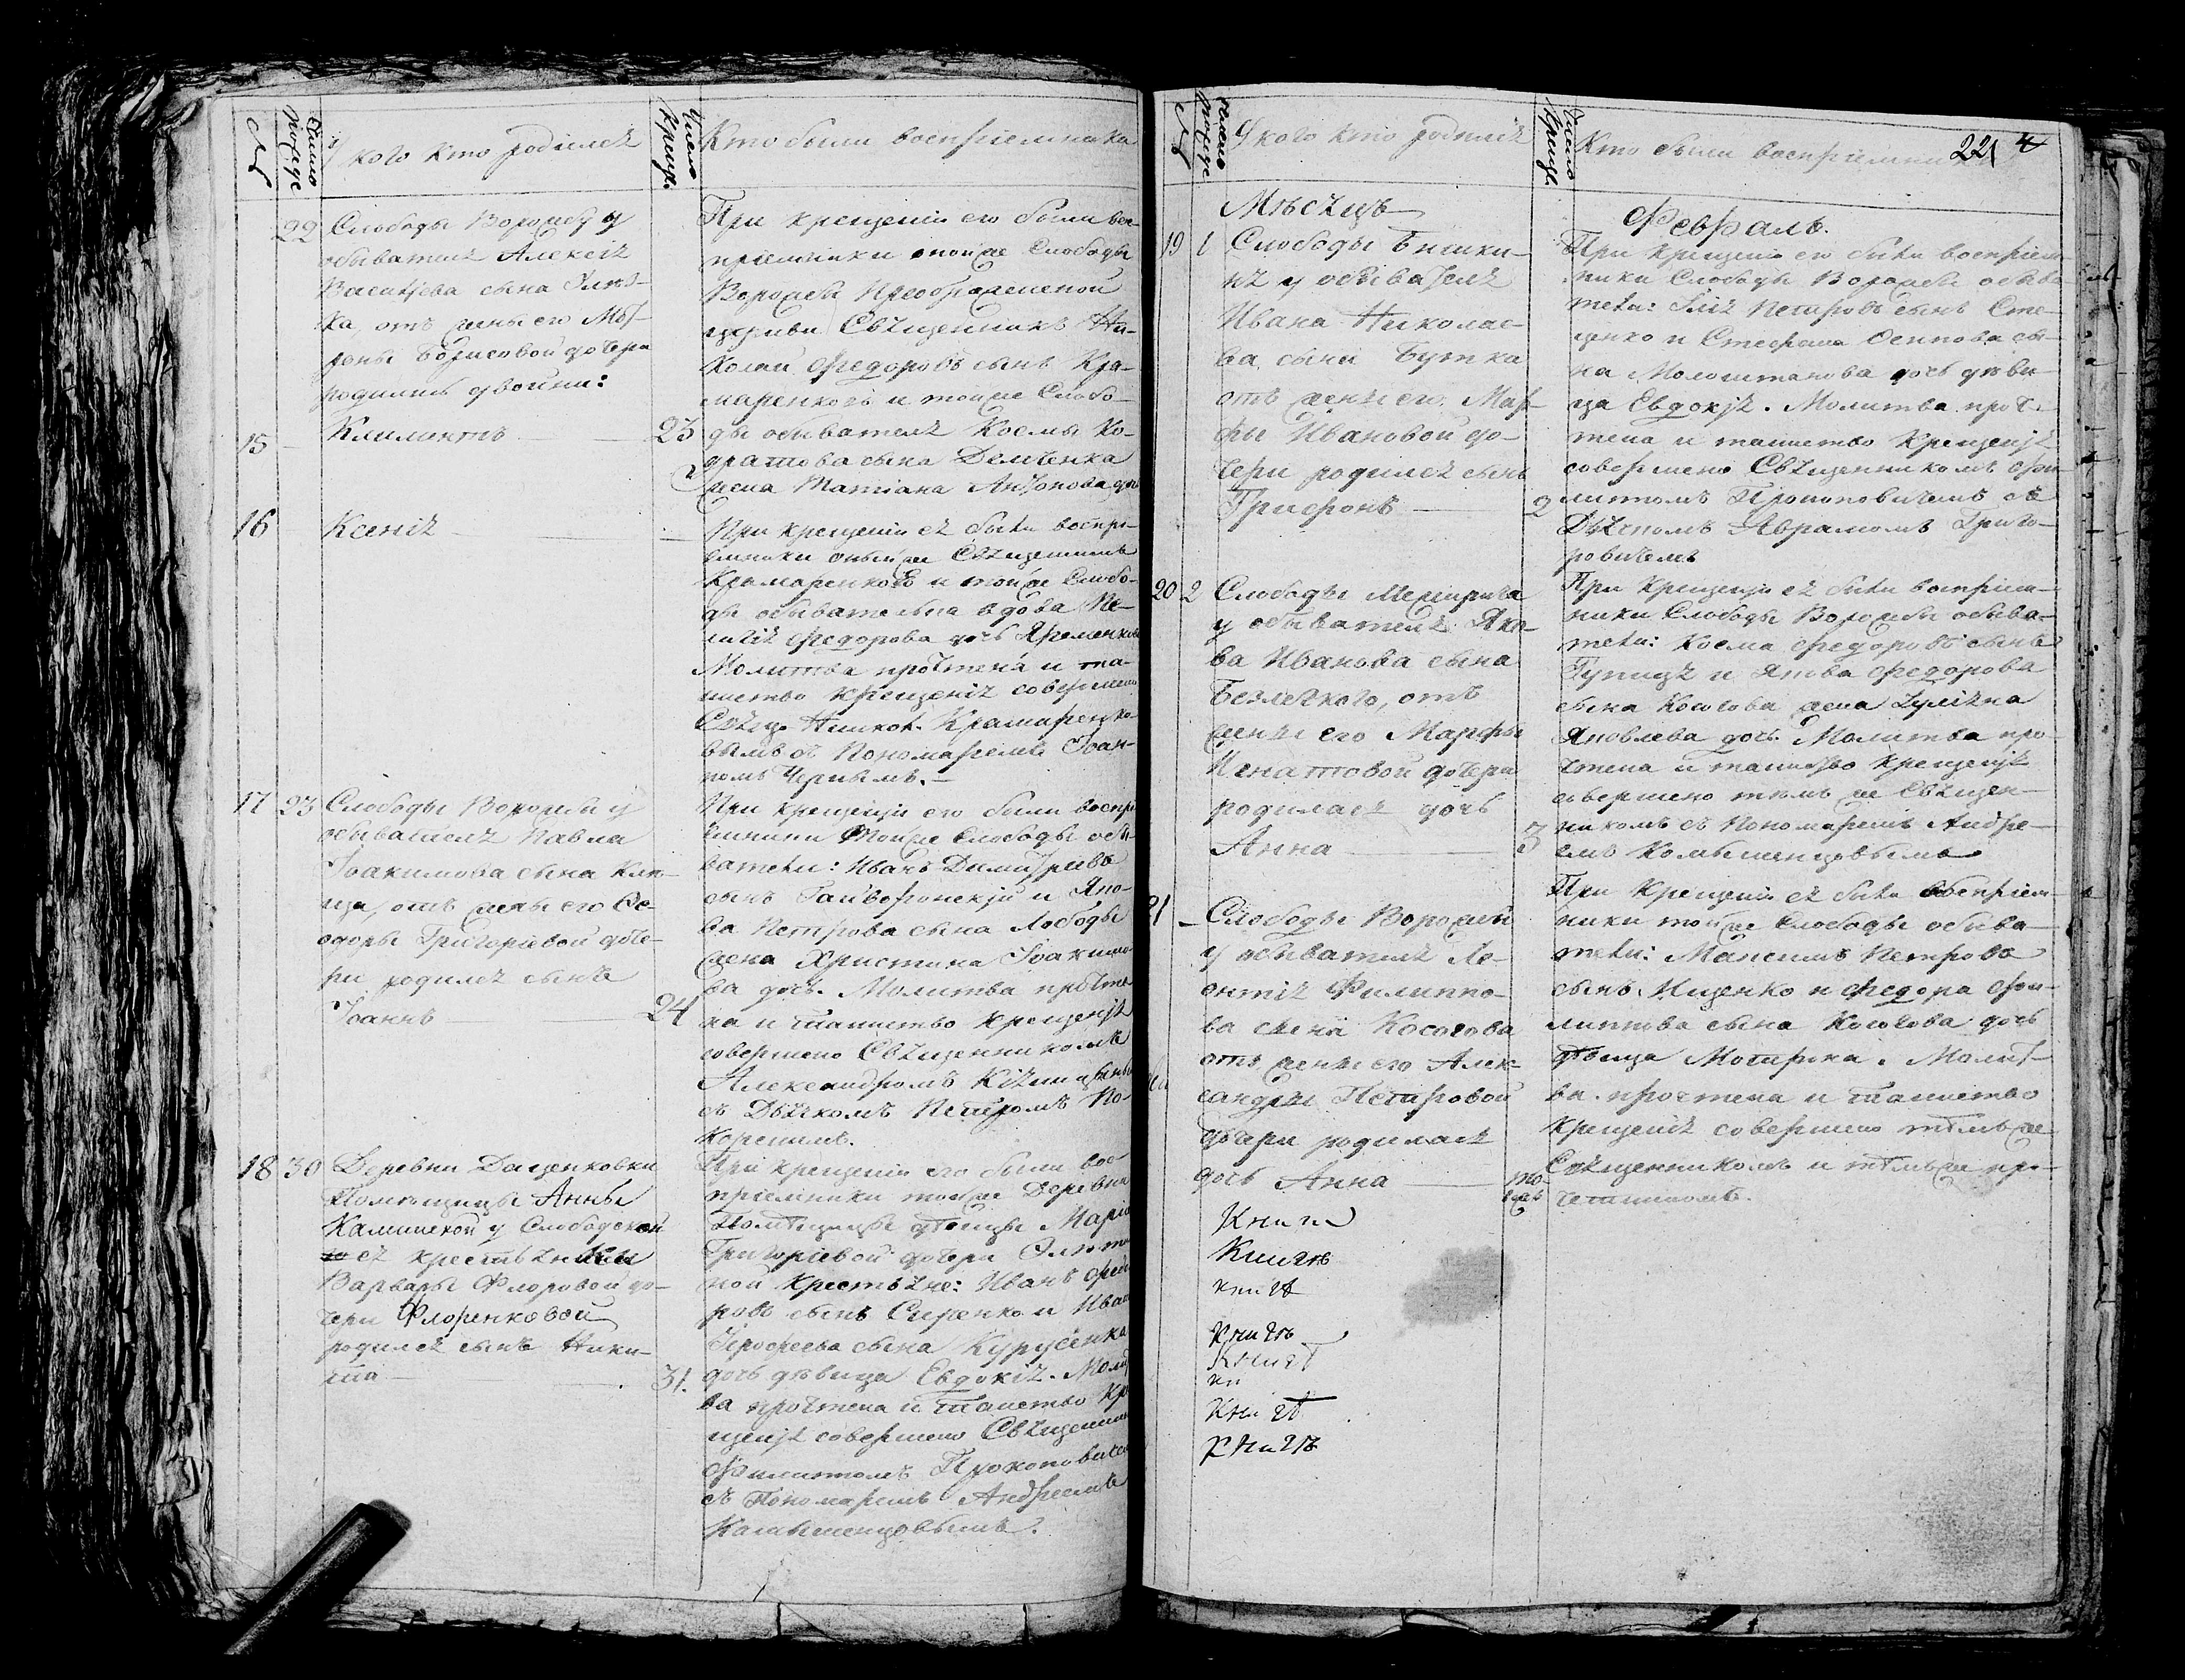 №
Число рожде
У кого кто родился
Число крещ.
Кто были восприемники
22 Слободы Ворожбы у
обывателя Алексѣя
Василіева сына
ка, отъ жены его Мат-
роны Борисовой дочери
родились двойни:
15 Климентъ 23
16 Ксенія
При крещеніи его были вос-
пріемники тойже Слободы
Ворожбы Преображенской
церкви Священникъ Ни-
колай Федоровъ сынъ Кра-
маренковъ и тойже Слобо-
ды обывателя Космы Ко-
дратова сына Демченка
жена Татіана Антонова дочь
При крещеніи ея были воспрі-
емники оный же Священникъ
Крамаренковъ и тойже Слобо-
ды обывателька вдова Пе-
лагія Федорова дочь Яременкова
Молитва прочтена и та-
инство крещенія совершено
Свящ. Никол. Крамаренко-
вымъ съ Пономаремъ Іоан-
номъ Чернымъ.
17 23 Слободы Ворожбы у
обывателя Павла
Іоакимова сына Кли-
ца, отъ жены его Ѳе-
одоры Григоріевой доче-
ри родился сынъ
Іоаннъ 24
При крещеніи его были воспрі
емники Тойже Слободы обы-
ватели: Иванъ Димитріевъ
сынъ Гайворонскій и Яко-
ва Петрова сына Лободы
жена Христина Іоакимо-
ва дочь. Молитва прочте
на и таинство крещенія
совершено Священникомъ
Александромъ
съ Дьячкомъ Петромъ По-
корскимъ.
18 30 Деревни Даценковки
Помѣщицы Анны
Каминской у Слободской
ея крестьянки
Варвары Флоровой до-
чери Флоренковой
родился сынъ Ники-
та 31.
При крещеніи его были вос-
пріемники тойже Деревни
Помѣщицы дѣвицы Маріи
Григоріевой дочери
ной крестьяне: Иванъ Федо
ровъ сынъ Сиренко и Иван
Ерофеева сына Курусенка
дочь дѣвица Евдокія. Молит
ва прочтена и Таинство кре
щенія совершено Священник
Филиппомъ Прокоповичем
съ Пономаремъ Андреемъ
Калышенцовымъ.
№
число рожде
У кого кто родился
Число крещ.
Кто были восприемники
221 4
Мѣсяцъ
Февраль.
19 1 Слободы Бишки-
ня у обывателя
Ивана Николае-
ва сына Бутка
отъ жены его Мар-
фы Ивановой до-
чери родился сынъ
Трифонъ 2
При крещеніи его были воспріем
ники Слободы Ворожбы обыва
тели: Илія Петровъ сынъ Сте-
ценко и Стефана Осипова сы-
на Молоштанова дочь дѣви-
ца Евдокія. Молитва проч-
тена и таинство Крещенія
совершено Священникомъ Фи-
липомъ Прокоповичемъ съ
Дьячкомъ Аврамомъ Григо-
ровичемъ
20 2 Слободы Межирича
у обывателя Яко-
ва Иванова сына
Безлечкого, отъ
жены его Марфы
Игнатовой дочери
родилась дочь
Анна 3
При крещеніи ея были воспріем-
ники Слободы Ворожбы обыва-
тели: Косма Федоровъ сынъ
Гупица и Якова Федорова
сына Косогова жена Іуліяна
Яковлева дочь. Молитва про-
чтена и таинство крещенія
совершено тѣмъ же Священ-
никомъ съ Пономаремъ Андре-
емъ Колышенцовымъ
21 Слободы Ворожбы
у обывателя Ле-
онтія Филиппо-
ва сына Косогова
отъ жены его Алек-
сандры Петровой
дочери родилась
дочь Анна
При Крещеніи ея были воспріем-
ники тойже Слободы обыва-
тели: Максимъ Петровъ
сынъ Ищенко и Федора Фи-
липпова сына Косогова дочь
дѣвица Мотирка. Молит-
ва прочтена и таинство
крещенія совершено тѣмъже
Священникомъ и тѣмъже при-
четникомъ.
Книга
Книгъ
книгъ
Книгъ
Книгъ
кн
Книгъ
Книгъ